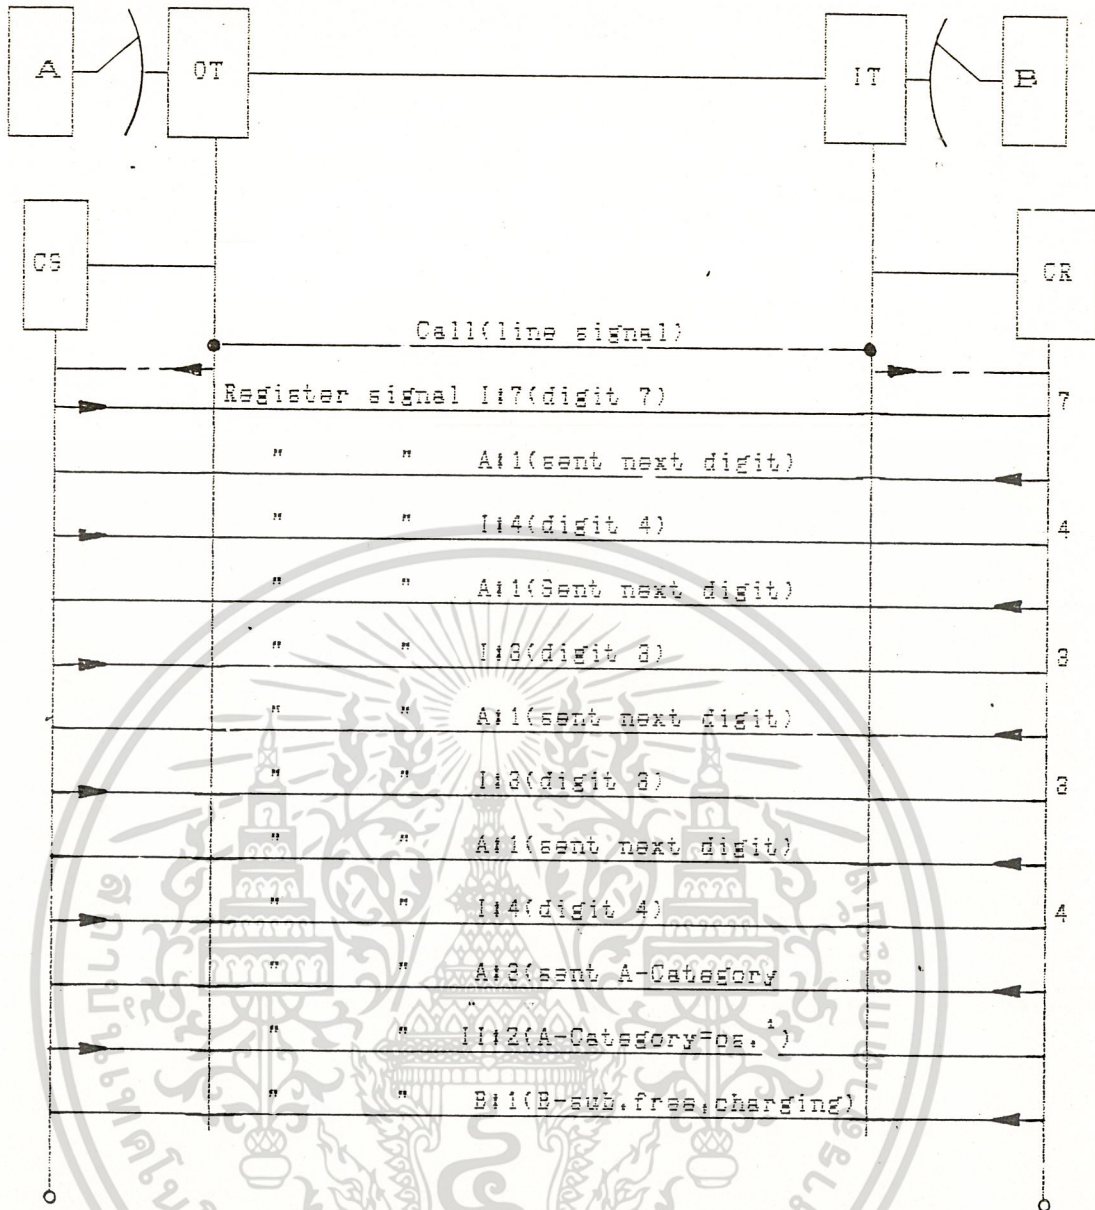 A OT IT B
CS CR
Call(line signal)
Register signal I:7(digit 7) 7
" " A:1(sent next digit)
" " I:4(digit 4) 4
" " A:1(Sent next digit)
" " I:3(digit 3) 3
" " A:1(sent next digit)
" " I:3(digit 3) 3
" " A:1(sent next digit)
" " I:4(digit 4) 4
" " A:3(sent A-Category
" " II:2(A-Category=os.)
" " B:1(B-sub.free,charging)